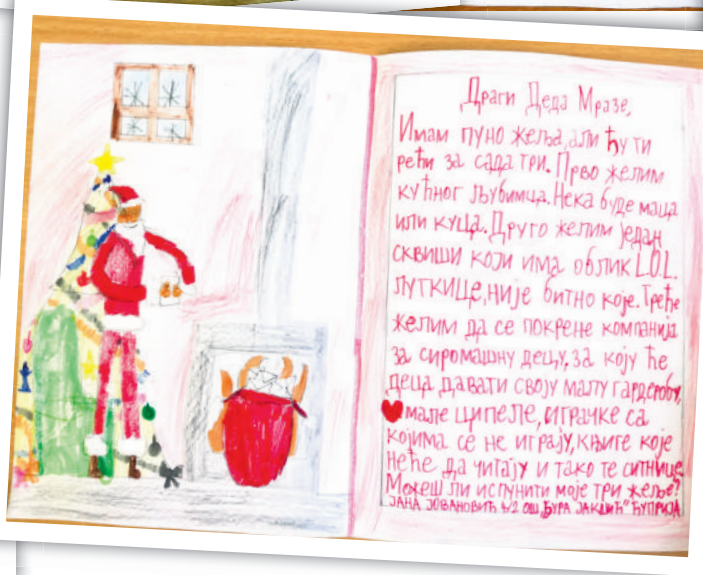 Драги Деда Мразе,
Имам пуно жеља, али ћу ти
рећи за сада три. Прво желим
кућног љубимца. Нека буде маца
или куца. Друго желим један
сквиши који има облик L.O.L.
луткице, није битно које. Треће
желим да се покрене компанија
за сиромашну децу, за коју ће
деца давати своју малу гардеробу,
мале ципеле, играчке са
којима се не играју, књиге које
неће да читају и тако те ситнице.
Можеш ли испунити моје три жеље?
ЈАНА ЈОВАНОВИЋ 4/2 ОШ „ЂУРА ЈАКШИЋ" ЋУПРИЈА